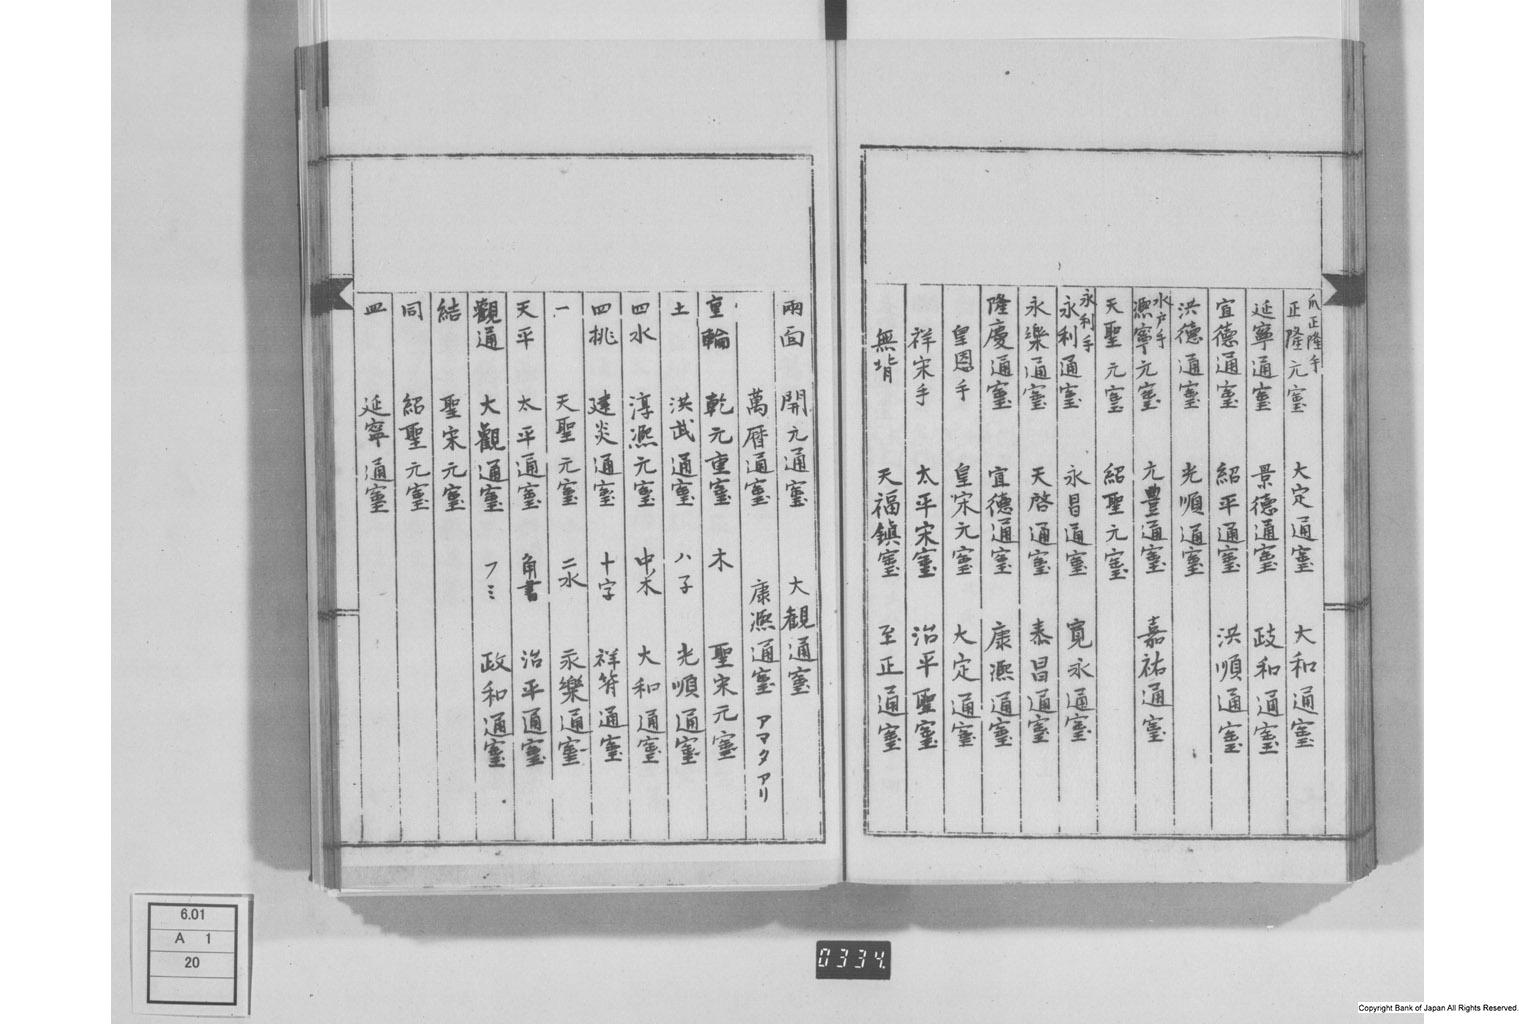 爪正隆手
正隆元寳 大定通寳 大和通寳
延寧通寳 景德通寳 政和通寳
宣德通寳 紹平通寳 洪順通寳
洪德通寳 光順通寳
水戸手
熈寧元寳 元豊通寳 嘉祐通寳
天聖元寳 紹聖元寳
永利手
永利通寳 永昌通寳 寛永通寳
永樂通寳 天啓通寳 泰昌通寳
隆慶通寳 宣德通寳 康熈通寳
皇恩手 皇宋元寳 大定通寳
祥宋手 太平宋寳 治平聖寳
無背 天福鎮寳 至正通寳
兩面 開元通寳 大観通寳
萬暦通寳 康熈通寳 アマタアリ
重輪 乾元重寳 木 聖宋元寳
土 洪武通寳 ハ子 光順通寳
四水 淳熈元寳 中木 大和通寳
四桃 建炎通寳 十字 祥符通寳
一 天聖元寳 二水 永樂通寳
天平 太平通寳 角書 治平通寳
觀通 大觀通寳 フミ 政和通寳
結 聖宋元寳
同 紹聖元寳
皿 延寧通寳
6.01
A 1
20
0334
Copyright Bank of Japan All Rights Reserved.